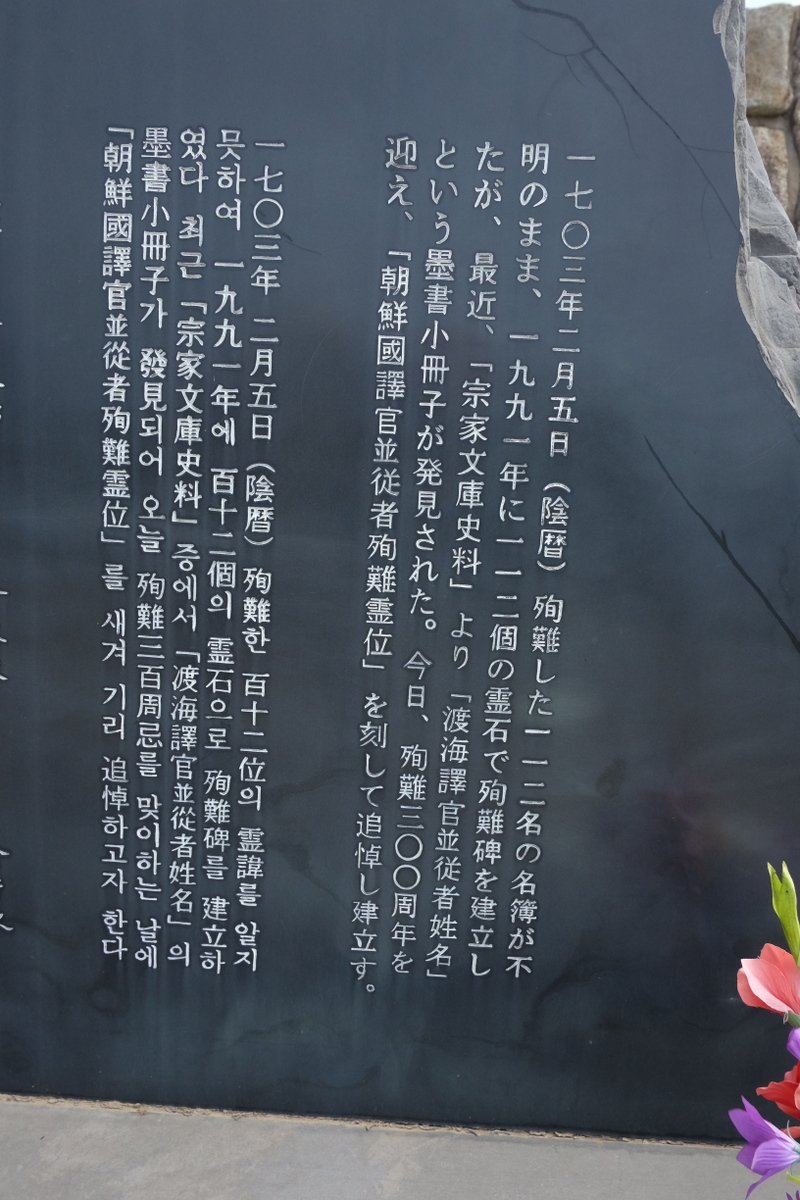 一七〇三年二月五日（陰暦）殉難した一一二名の名簿が不
明のまま、一九九一年に一一二個の霊石で殉難碑を建立し
たが、最近、「宗家文庫史料」より「渡海譯官並従者姓名」
という墨書小冊子が発見された。今日、殉難三〇〇周年を
迎え、「朝鮮國譯官並従者殉難霊位」を刻して追悼し建立す。
一七〇三年 二月五日（陰暦）殉難한 百十二位의 霊諱를 알지
못하여 一九九一年에 百十二個의 霊石으로 殉難碑를 建立하
였다 최근「宗家文庫史料」중에서「渡海譯官並從者姓名」의
墨書小冊子가 發見되어 오늘 殉難三百周忌를 맞이하는 날에
「朝鮮國譯官並從者殉難霊位」를 새겨 기리 追悼하고자 한다